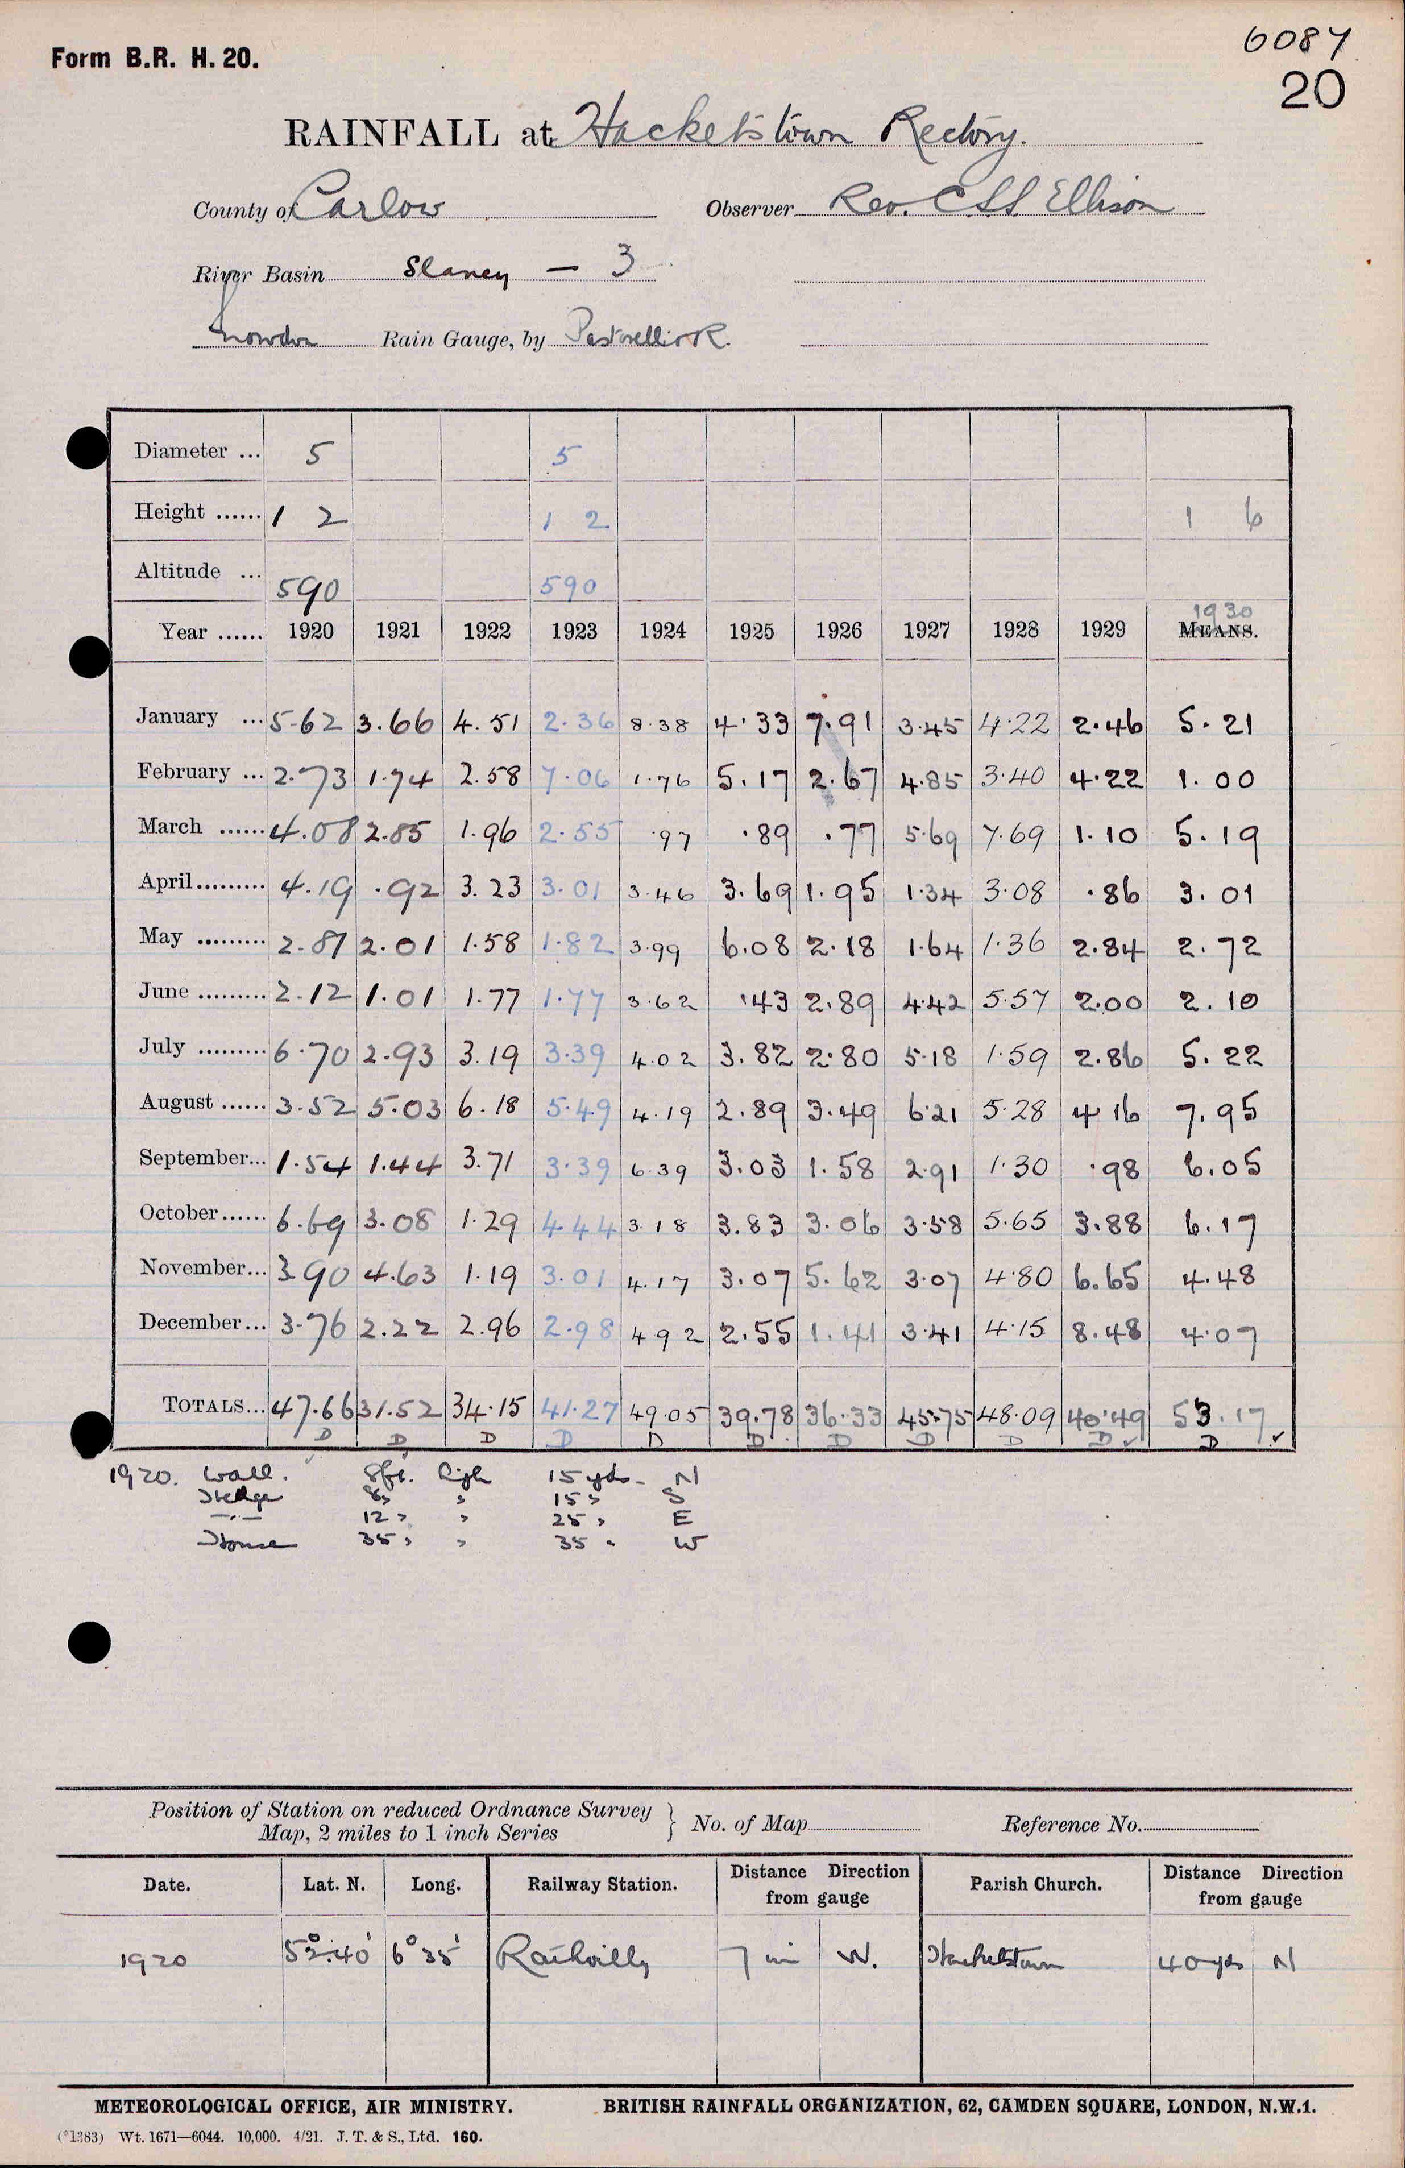 Form B.R. H. 20.
6087
20
RAINFALL at Hacketstown Rectory.
County of Carlow Observer Rev. C S S Ellison
River Basin Slaney — 3
Snowdon Rain Gauge, by Pastorelli & R.
Diameter ... 5 5
Height ...... 1 2 1 2 1 6
Altitude ... 590 590
1930
Year ...... 1920 1921 1922 1923 1924 1925 1926 1927 1928 1929 MEANS.
January ... 5.62 3.66 4.51 2.36 8.38 4.33 7.91 3.45 4.22 2.46 5.21
February ... 2.73 1.74 2.58 7.06 1.76 5.17 2.67 4.85 3.40 4.22 1.00
March ...... 4.08 2.85 1.96 2.55 .97 .89 .77 5.69 7.69 1.10 5.19
April ......... 4.19 .92 3.23 3.01 3.46 3.69 1.95 1.34 3.08 .86 3.01
May ......... 2.81 2.01 1.58 1.82 3.99 6.08 2.18 1.64 1.36 2.84 2.72
June ......... 2.12 1.01 1.77 1.77 3.62 .43 2.89 4.42 5.57 2.00 2.10
July ......... 6.70 2.93 3.19 3.39 4.02 3.82 2.80 5.18 1.59 2.86 5.22
August ...... 3.52 5.03 6.18 5.49 4.19 2.89 3.49 6.21 5.28 4.16 7.95
September... 1.54 1.44 3.71 3.39 6.39 3.03 1.58 2.91 1.30 .98 6.05
October...... 6.69 3.08 1.29 4.44 3.18 3.83 3.06 3.58 5.65 3.88 6.17
November... 3.90 4.63 1.19 3.01 4.17 3.07 5.62 3.07 4.80 6.65 4.48
December... 3.76 2.22 2.96 2.98 4.92 2.55 1.41 3.41 4.15 8.48 4.07
TOTALS... 47.66 31.52 34.15 41.27 49.05 39.78 36.33 45.75 48.09 40.49 53.17
D D D D D D D D D D ✓ D ✓
1920. Wall. 8ft. high 15 yds. N
Hedge 8 " " 15 " S
—"— 12 " " 25 " E
House 35 " " 35 " W
Position of Station on reduced Ordnance Survey Map, 2 miles to 1 inch Series } No. of Map Reference No.
Date. Lat. N. Long. Railway Station. Distance Direction from gauge Parish Church. Distance Direction from gauge
1920 52° 40' 6° 35' Rathvilly 7 mi W. Hacketstown 40 yds N
METEOROLOGICAL OFFICE, AIR MINISTRY. BRITISH RAINFALL ORGANIZATION, 62, CAMDEN SQUARE, LONDON, N.W.1.
(*1383) Wt. 1671—6044. 10,000. 4/21. J. T. & S., Ltd. 160.